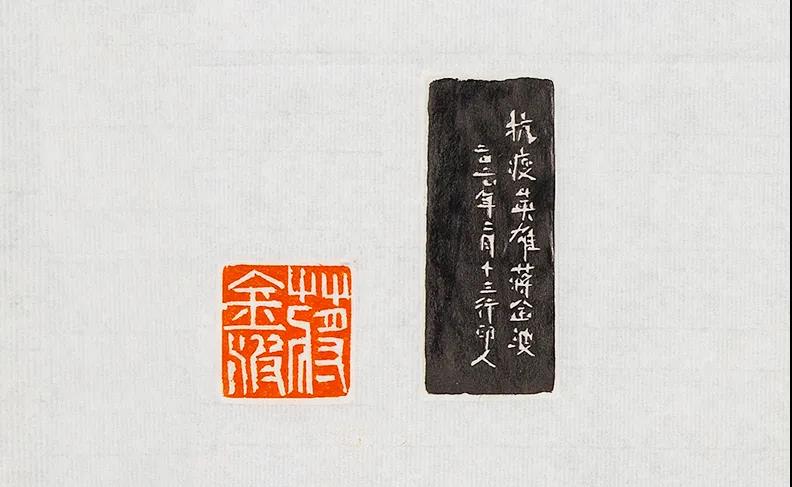 抗疫英雄蔣金波
二〇二〇年二月十三行印人
蔣金波